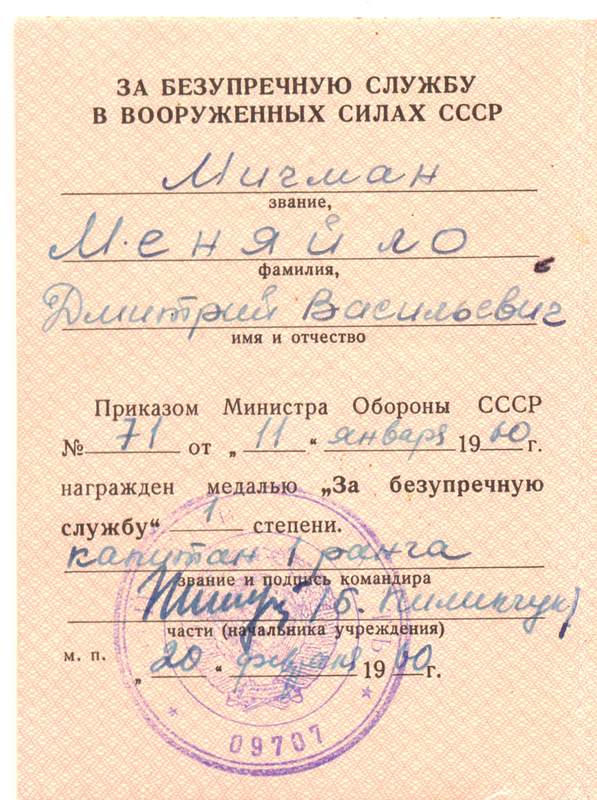 ЗА БЕЗУПРЕЧНУЮ СЛУЖБУ
В ВООРУЖЕННЫХ СИЛАХ СССР
Мичман
звание,
Меняйло
фамилия,
Дмитрий Васильевич
имя и отчество
Приказом Министра Обороны СССР
№ 71 от „ 11 “ января 1960 г.
награжден медалью „За безупречную
службу“ 1 степени.
капитан 1 ранга
звание и подпись командира
части (начальника учреждения)
м. п.
„ 20 “ февраля 1960 г.
09707